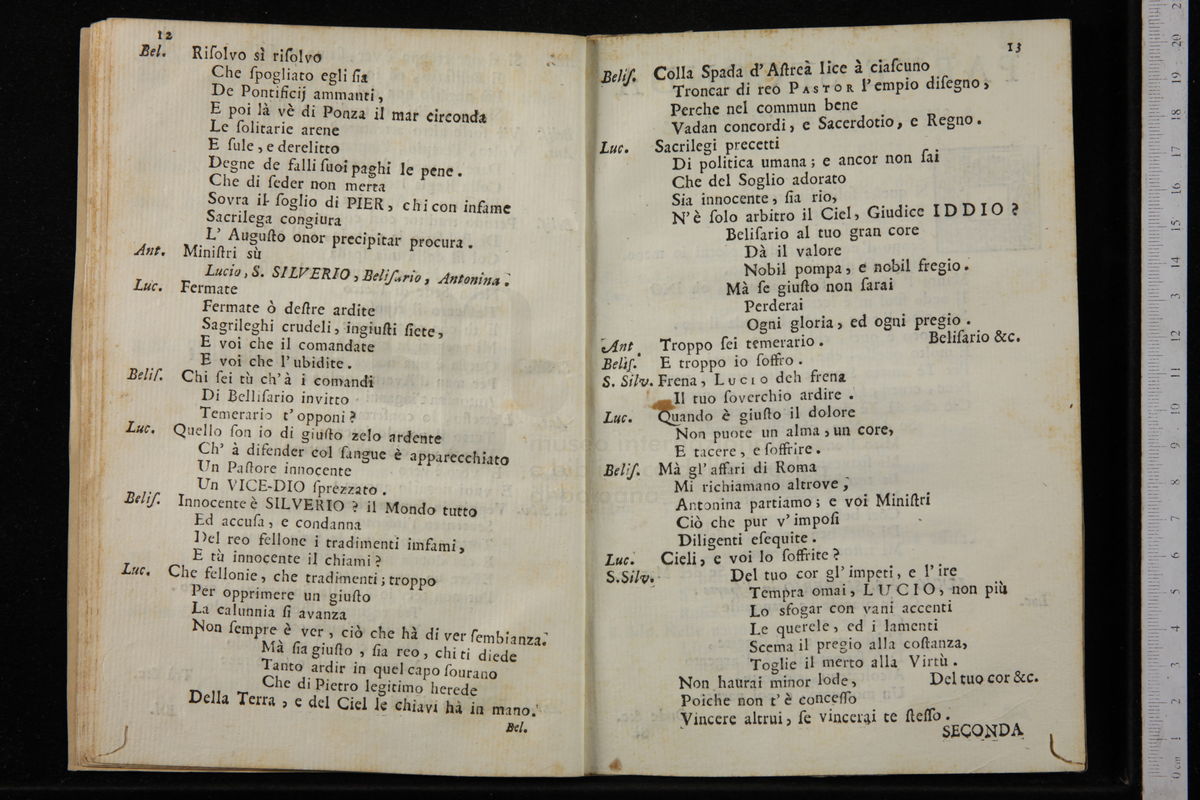 12
Bel. Riſolvo sì riſolvo
Che ſpogliato egli ſia
De Pontificij ammanti,
E poi là vè di Ponza il mar circonda
Le ſolitarie arene
E ſule, e derelitto
Degne de falli ſuoi paghi le pene.
Che di ſeder non merta
Sovra il ſoglio di PIER, chi con infame
Sacrilega congiura
L' Auguſto onor precipitar procura.
Ant. Miniſtri sù
Lucio, S. SILVERIO, Beliſario, Antonina.
Luc. Fermate
Fermate ò deſtre ardite
Sagrileghi crudeli, ingiuſti ſiete,
E voi che il comandate
E voi che l'ubidite.
Beliſ. Chi ſei tù ch'à i comandi
Di Belliſario invitto
Temerario t'opponi?
Luc. Quello ſon io di giuſto zelo ardente
Ch' à difender col ſangue è apparecchiato
Un Paſtore innocente
Un VICE-DIO ſprezzato.
Beliſ. Innocente è SILVERIO? il Mondo tutto
Ed accuſa, e condanna
Del reo fellone i tradimenti imfami,
E tù innocente il chiami?
Luc. Che fellonie, che tradimenti; troppo
Per opprimere un giuſto
La calunnia ſi avanza
Non ſempre è ver, ciò che hà di ver ſembianza.
Mà ſia giuſto, ſia reo, chi ti diede
Tanto ardir in quel capo ſourano
Che di Pietro legitimo herede
Della Terra, e del Ciel le chiavi hà in mano.
Bel.
13
Beliſ. Colla Spada d'Aſtrea lice à ciaſcuno
Troncar di reo PASTOR l'empio diſegno,
Perche nel commun bene
Vadan concordi, e Sacerdotio, e Regno.
Luc. Sacrilegi precetti
Di politica umana; e ancor non ſai
Che del Soglio adorato
Sia innocente, ſia rio,
N'è ſolo arbitro il Ciel, Giudice IDDIO?
Beliſario al tuo gran core
Dà il valore
Nobil pompa, e nobil fregio.
Mà ſe giuſto non ſarai
Perderai
Ogni gloria, ed ogni pregio.
Beliſario &c.
Ant. Troppo ſei temerario.
Beliſ. E troppo io ſoffro.
S. Silv. Frena, LUCIO deh frena
Il tuo ſoverchio ardire.
Luc. Quando è giuſto il dolore
Non puote un alma, un core,
E tacere, e ſoffrire.
Beliſ. Mà gl'affari di Roma
Mi richiamano altrove;
Antonina partiamo; e voi Miniſtri
Ciò che pur v'impoſi
Diligenti eſequite.
Luc. Cieli, e voi lo ſoffrite?
S. Silv. Del tuo cor gl'impeti, e l'ire
Tempra omai, LUCIO, non più
Lo sfogar con vani accenti
Le querele, ed i lamenti
Scema il pregio alla coſtanza,
Toglie il merto alla Virtù.
Non haurai minor lode, Del tuo cor &c.
Poiche non t'è conceſſo
Vincere altrui, ſe vincerai te ſteſſo.
SECONDA